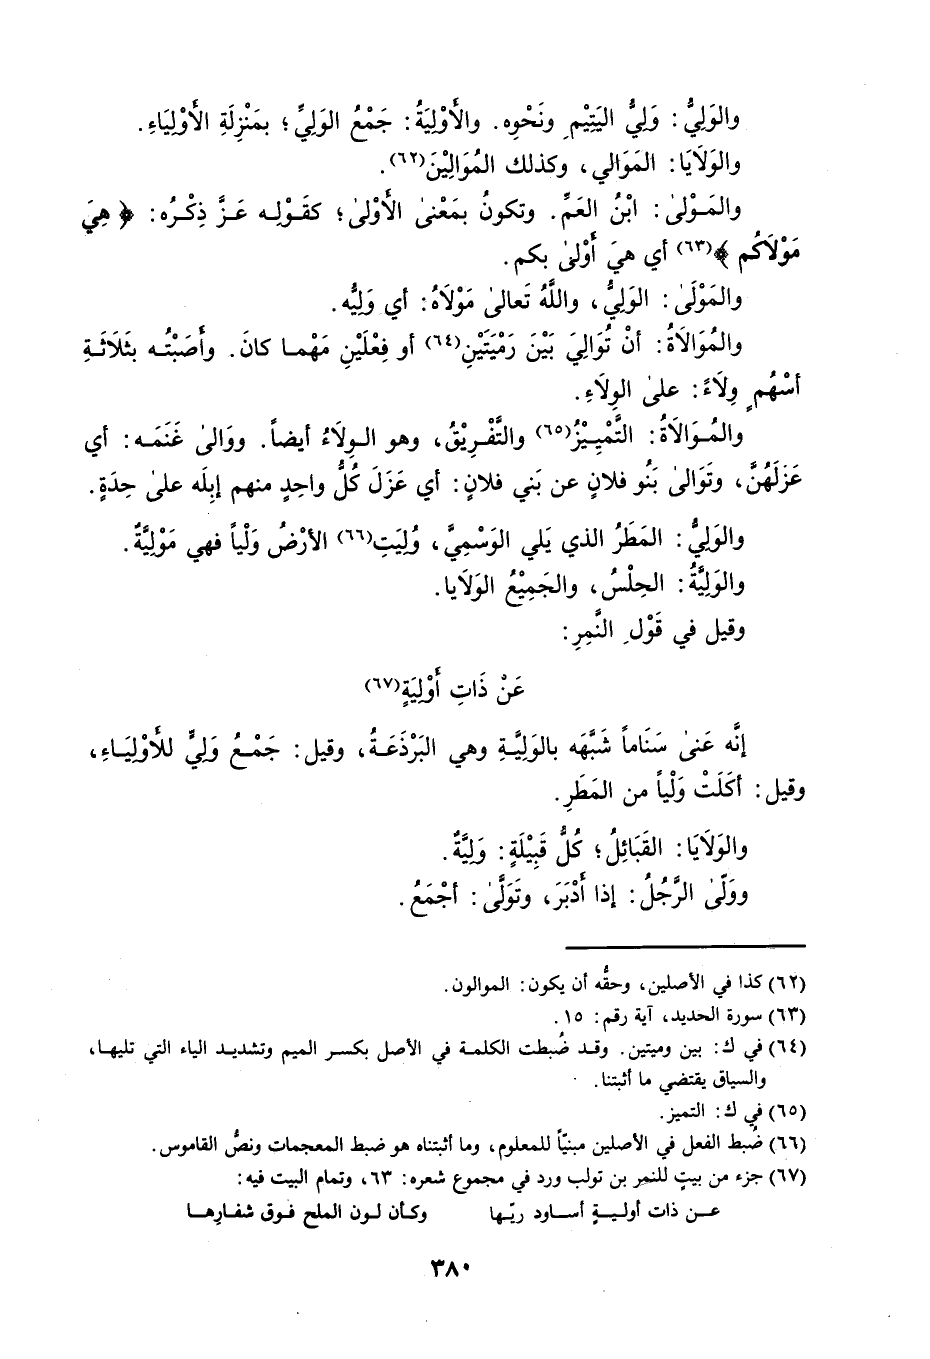 والوَلِيُّ: وَلِيُّ اليَتِيْمِ ونَحْوِه. والأَوْلِيَةُ: جَمْعُ الوَلِيِّ؛ بمَنْزِلَةِ الأَوْلِيَاءِ.
والوَلَايَا: المَوَالي، وكذلك المُوَالِيْنَ(٦٢).
والمَوْلىٰ: ابْنُ العَمِّ. وتكونُ بمَعْنىٰ الأَوْلىٰ؛ كقَوْلِه عَزَّ ذِكْرُه: ﴿ هِيَ
مَوْلَاكُم ﴾(٦٣) أي هيَ أَوْلىٰ بكم.
والمَوْلَىٰ: الوَلِيُّ، واللَّهُ تَعالىٰ مَوْلَاهُ: أي وَلِيُّه.
والمُوَالَاةُ: أنْ تُوَالِيَ بَيْنَ رَمْيَتَيْنِ(٦٤) أو فِعْلَيْنِ مَهْما كانَ. وأَصَبْتُه بثَلَاثَةِ
أسْهُمٍ وِلَاءً: علىٰ الوِلَاءِ.
والمُوَالَاةُ: التَّمْيِيْزُ(٦٥) والتَّفْرِيْقُ، وهو الوِلَاءُ أيضاً. ووَالىٰ غَنَمَه: أي
عَزَلَهُنَّ، وتَوَالىٰ بَنُو فلانٍ عن بَني فلانٍ: أي عَزَلَ كُلُّ واحِدٍ منهم إبِلَه علىٰ حِدَةٍ.
والوَلِيُّ: المَطَرُ الذي يَلي الوَسْمِيَّ، وُلِيَتِ(٦٦) الأرْضُ وَلْياً فهي مَوْلِيَّةٌ.
والوَلِيَّةُ: الحِلْسُ، والجَمِيْعُ الوَلَايا.
وقيل في قَوْلِ النَّمِرِ:
عَنْ ذَاتِ أَوْلِيَةٍ(٦٧)
إنَّه عَنىٰ سَنَاماً شَبَّهَه بالوَلِيَّةِ وهي البَرْذَعَةُ، وقيل: جَمْعُ وَلِيٍّ للأَوْلِيَاءِ،
وقيل: أكَلَتْ وَلْياً من المَطَرِ.
والوَلَايَا: القَبَائِلُ؛ كُلُّ قَبِيْلَةٍ: وَلِيَّةٌ.
ووَلّىٰ الرَّجُلُ: إذا أَدْبَرَ، وتَوَلَّىٰ: أجْمَعُ.
(٦٢) كذا في الأصلين، وحقُّه أن يكون: الموالون.
(٦٣) سورة الحديد، آية رقم: ١٥.
(٦٤) في ك: بين وميتين. وقد ضُبطت الكلمة في الأصل بكسر الميم وتشديد الياء التي تليها،
والسياق يقتضي ما أثبتنا.
(٦٥) في ك: التميز.
(٦٦) ضُبط الفعل في الأصلين مبنيّاً للمعلوم، وما أثبتناه هو ضبط المعجمات ونصُّ القاموس.
(٦٧) جزء من بيتٍ للنمر بن تولب ورد في مجموع شعره: ٦٣، وتمام البيت فيه:
عن ذات أوليةٍ أساود ريّها وكأن لون الملح فوق شفارِها
٣٨٠